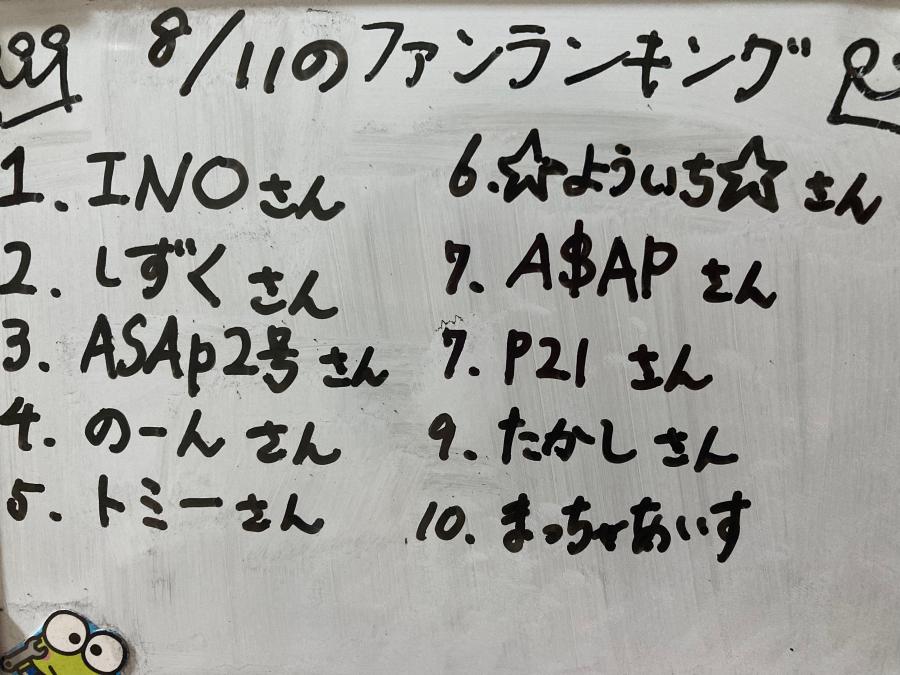 8/11のファンランキング
1. INOさん
2. しずくさん
3. ASAp2号さん
4. のーんさん
5. トミーさん
6. ☆よういち☆さん
7. A$APさん
7. P21さん
9. たかしさん
10. まっちゃあいす